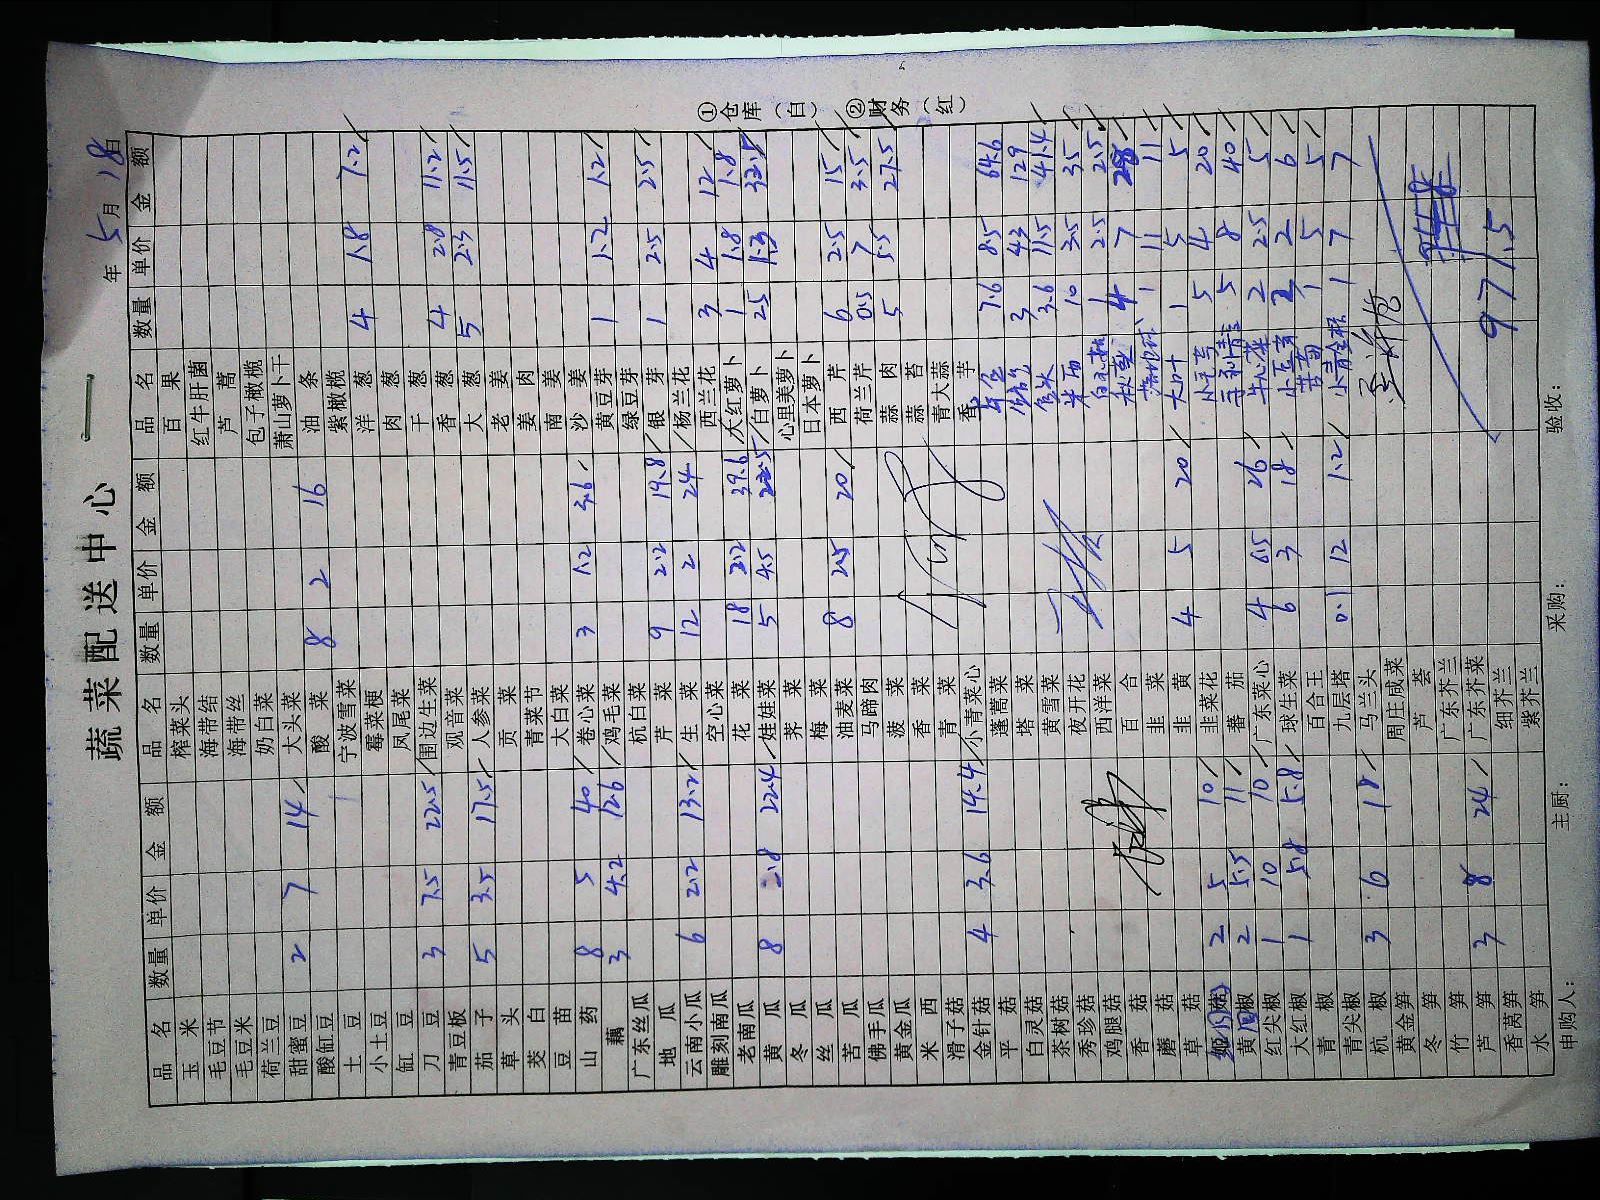 蔬菜配送中心
年 5月 18日
品名 数量 单价 金额 品名 数量 单价 金额 品名 数量 单价 金额
玉米 榨菜头 百果
毛豆节 海带结 红牛肝菌
毛豆米 海带丝 芦蒿
荷兰豆 奶白菜 包子橄榄
甜蜜豆 2 7 14 大头菜 萧山萝卜干
酸缸豆 酸菜 8 2 16 油条
土豆 宁波雪菜 紫橄榄
小土豆 霉菜梗 洋葱 4 1.8 7.2
缸豆 凤尾菜 肉葱
刀豆 3 7.5 22.5 围边生菜 干葱
青豆板 观音菜 香葱 4 2.8 11.2
茄子 5 3.5 17.5 人参菜 大葱 5 2.3 11.5
草头 贡菜 老姜
茭白 青菜节 姜肉
豆苗 大白菜 南姜
山药 8 5 40 卷心菜 3 1.2 3.6 沙姜
藕 3 4.2 12.6 鸡毛菜 黄豆芽 1 1.2 1.2
广东丝瓜 杭白菜 绿豆芽
地瓜 芹菜 9 2.2 19.8 银芽 1 2.5 2.5
云南小瓜 6 2.2 13.2 生菜 12 2 24 杨兰花
雕刻南瓜 空心菜 西兰花 3 4 12
老南瓜 花菜 18 2.2 39.6 大红萝卜 1 1.8 1.8
黄瓜 8 2.8 22.4 娃娃菜 5 4.5 22.5 白萝卜 25 1.3 32.5
冬瓜 荠菜 心里美萝卜
丝瓜 梅菜 日本萝卜
苦瓜 油麦菜 8 2.5 20 西芹 6 2.5 15
佛手瓜 马蹄肉 荷兰芹 0.5 7 3.5
黄金瓜 菠菜 蒜肉 5 5.5 27.5
米西 香菜 蒜苔
滑子菇 青菜 青大蒜
金针菇 4 3.6 14.4 小青菜心 香芋
平菇 蓬蒿菜 7.6 8.5 64.6
白灵菇 塔菜 3 43 129
茶树菇 黄雪菜 3.6 11.5 41.4
秀珍菇 夜开花 米西 10 3.5 35
鸡腿菇 西洋菜 2.5 22.5
香菇 百合 秋葵 4 7 28
蘑菇 韭菜 1 11 11
草菇 韭黄 4 5 20 大叶 1 5 5
菇 2 5 10 韭菜花 小毛芋 5 4 20
黄圆椒 2 5.5 11 番茄 5 8 40
红尖椒 1 10 10 广东菜心 4 6.5 26 牛心菜 2 2.5 5
大红椒 1 5.8 5.8 球生菜 6 3 18 小豆苗 3 2 6
青椒 百合王 苦苗 1 5 5
青尖椒 九层塔 0.1 12 1.2 小青金桔 1 7 7
杭椒 3 6 18 马兰头
黄金笋 周庄咸菜
冬笋 芦荟
竹笋 广东芥兰
芦笋 3 8 24 广东芥菜 971.5
香莴笋 细芥兰
水笋 紫芥兰
申购人： 主厨： 采购： 验收：
①仓库（白） ②财务（红）